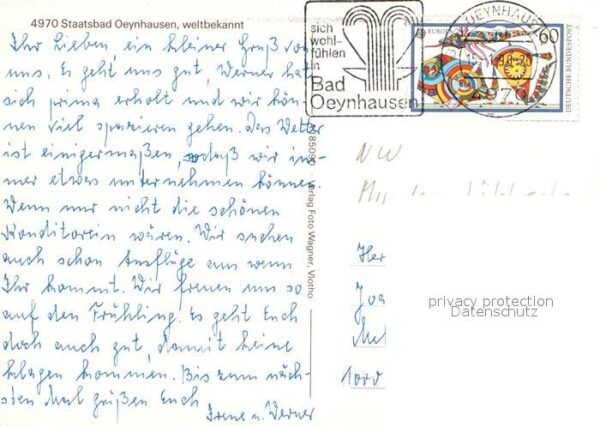 4970 Staatsbad Oeynhausen, weltbekannt
Ihr Lieben, ein kleiner Gruß von
uns. Es geht uns gut, Werner hat
sich prima erholt und wir kön-
nen viel spazieren gehen. Das Wetter
ist einigermaßen, sodaß wir im-
mer etwas unternehmen können.
Wenn nur nicht die schönen
Konditorein wären. Wir suchen
auch schon Ausflüge aus wenn
Ihr kommt. Wir freuen uns so
auf den Frühling. Es geht Euch
doch auch gut, damit keine
klagen kommen. Bis zum näch-
sten Mal grüßen Euch
Irene u. Werner
Verlag Foto Wagner, Vlotho
sich
wohl-
fühlen
in
Bad
Oeynhausen
OEYNHAUS
EUROPA
60
DEUTSCHE BUNDESPOST
NW
Her
Jos
privacy protection
Datenschutz